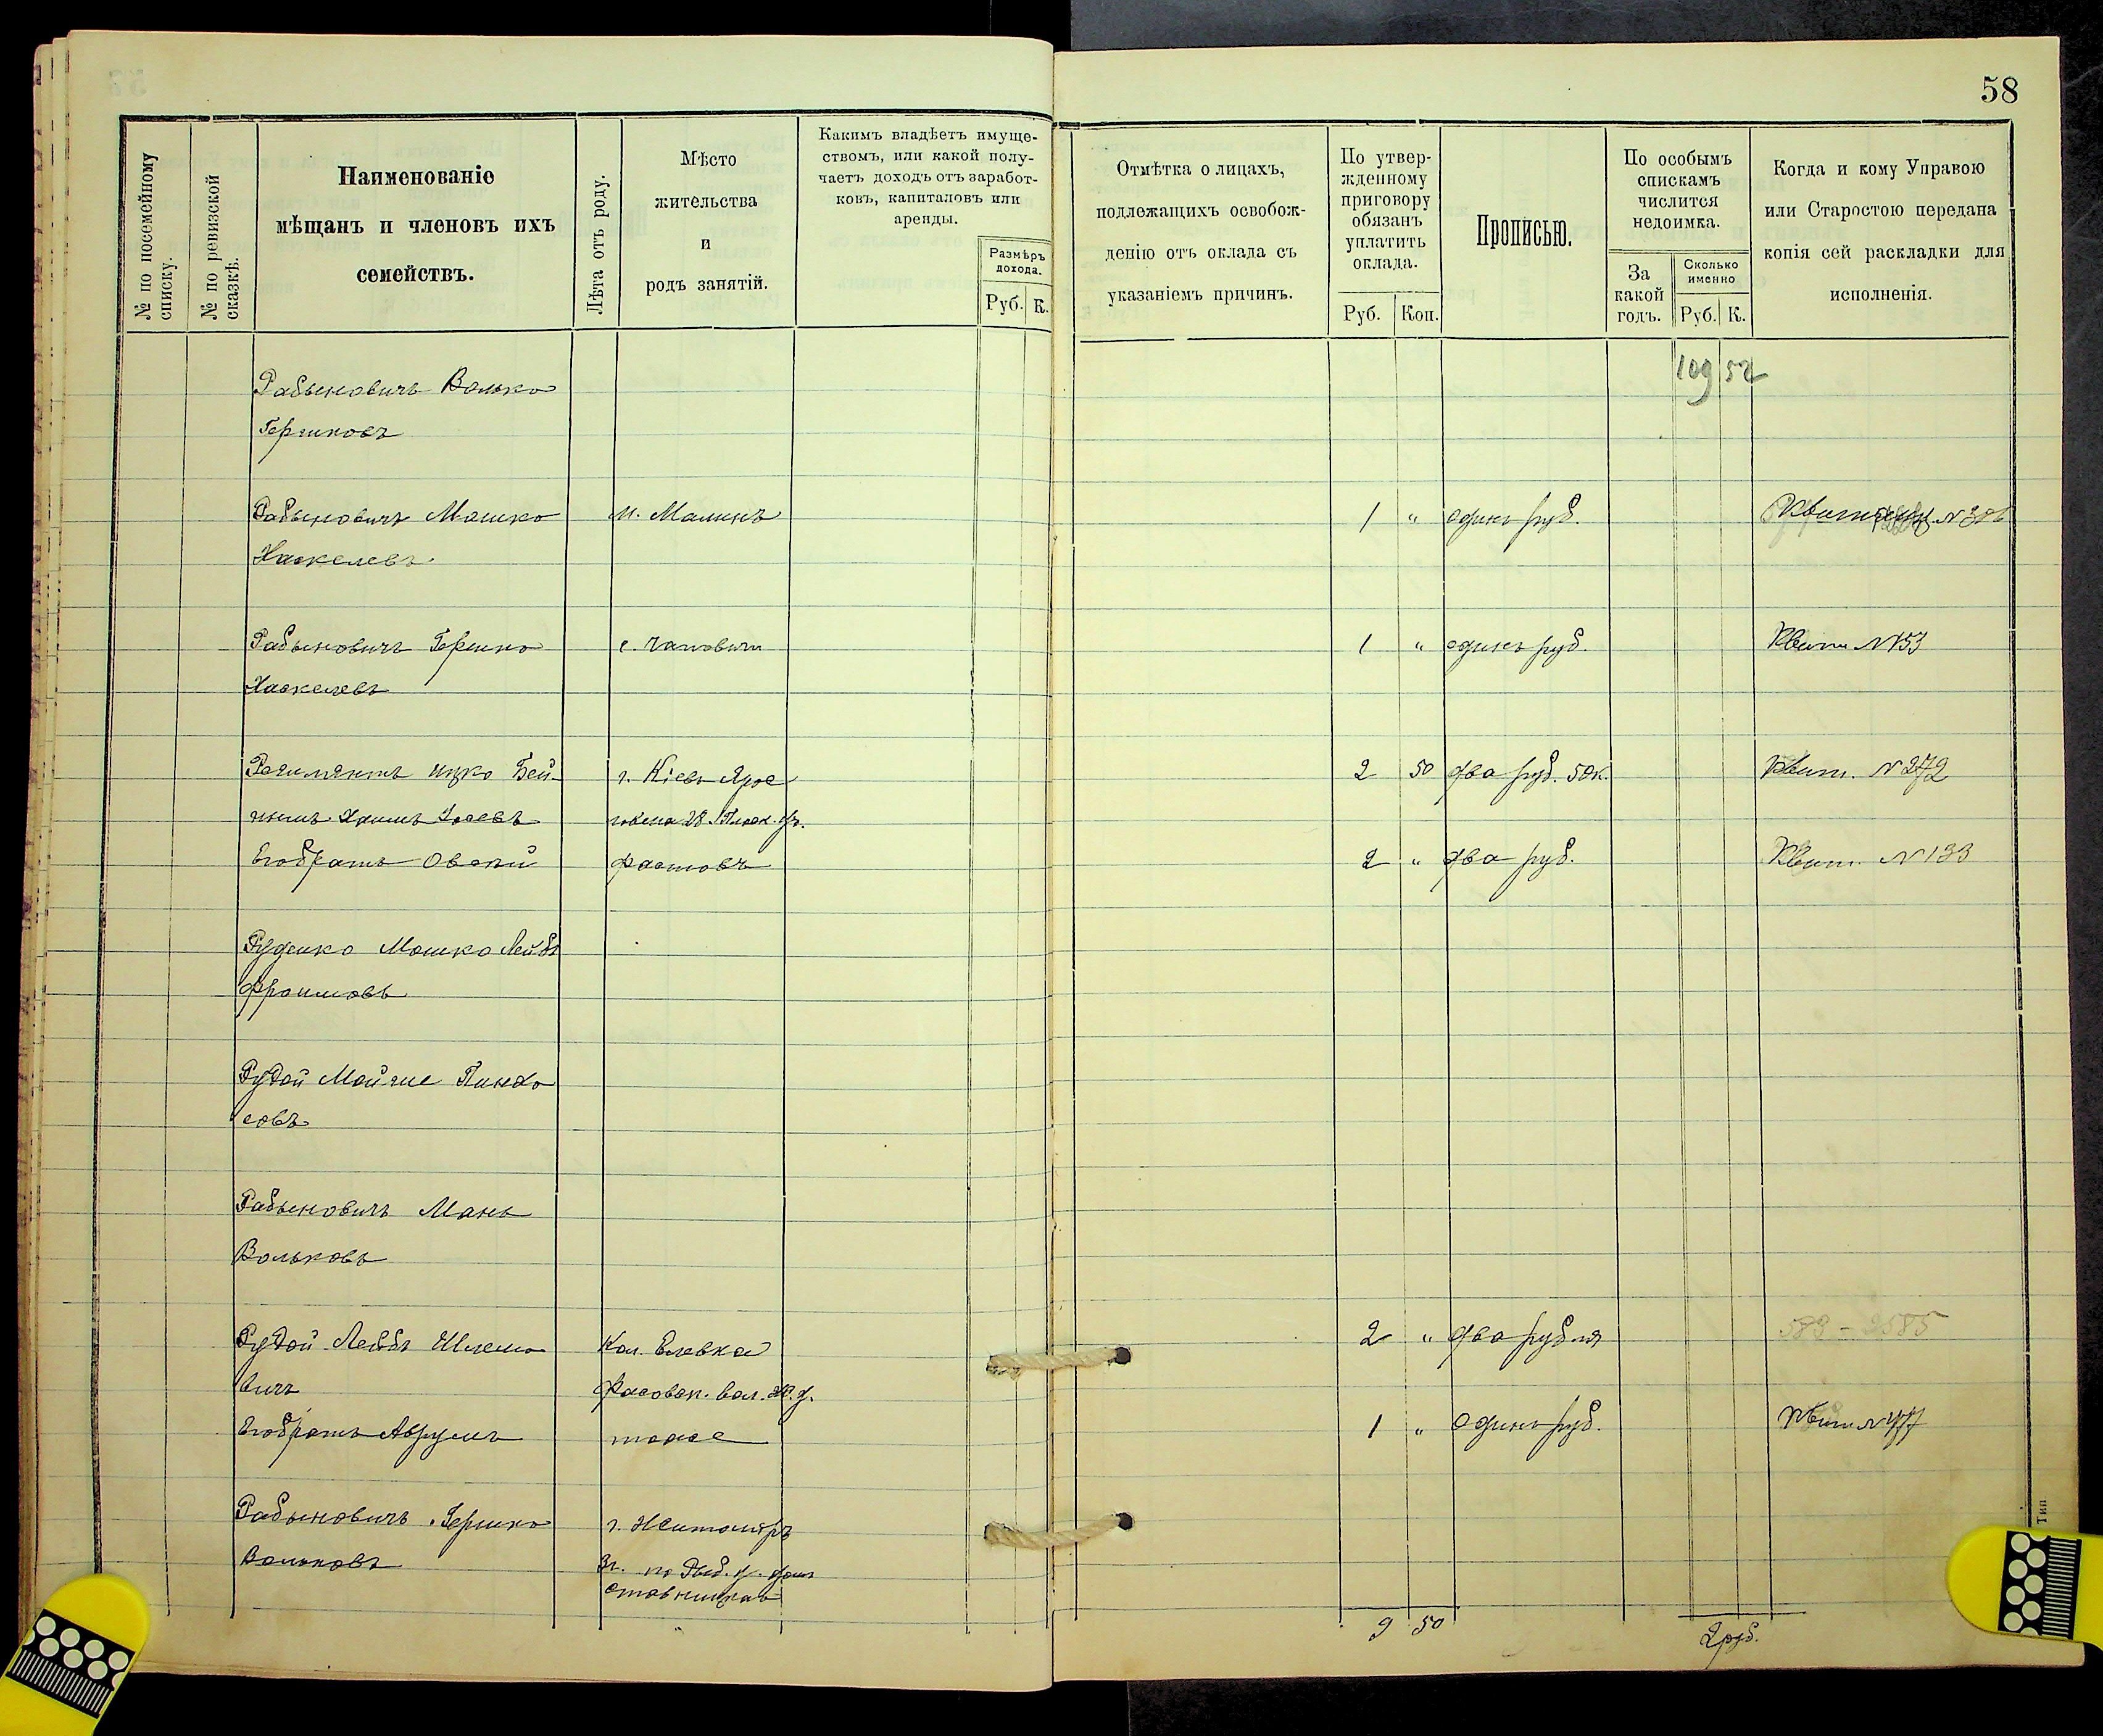 58
№ по посемейному списку.
№ по ревизской сказкѣ.
Наименованіе
мѣщанъ и членовъ ихъ
семействъ.
Лѣта отъ роду.
Мѣсто
жительства
и
родъ занятій.
Какимъ владѣетъ имуще-
ствомъ, или какой полу-
чаетъ доходъ отъ заработ-
ковъ, капиталовъ или
аренды.
Размѣръ
дохода.
Руб. К.
Отмѣтка о лицахъ,
подлежащихъ освобож-
денію отъ оклада съ
указаніемъ причинъ.
По утвер-
жденному
приговору
обязанъ
уплатить
оклада.
Руб. Коп.
Прописью.
По особымъ
спискамъ
числится
недоимка.
За
какой
годъ.
Сколько
именно
Руб. К.
Когда и кому Управою
или Старостою передана
копія сей раскладки для
исполненія.
109 52
Рабыновичъ Волько
Гершковъ
Рабыновичъ Мошко м. Малинъ 1 " одинъ руб.
Хаскелевъ
Рабыновичъ Гершко с. Чаповичи 1 " одинъ руб. Квит №153
Хаскелевъ
Ицко Бей- г. Кіевъ Ярос 2 50 два руб. 50к. Квит. №272
Хаимъ 28
Его братъ Овсей Фастовъ 2 " два руб. Квит. №133
Руденко Мошко Лейбъ
Фроимовъ
Рудой Мойше Пинхо
совъ
Рабыновичъ Мань
Вольковъ
Рудой Лейбъ Шлемо Кол. Елевка 2 " два рубля 583 - 2585
вичъ вол. Р. у.
Его братъ Аврумъ тоже 1 " одинъ руб. Квит №477
Рабыновичъ Гершко г. Житомiръ
Вольковъ по Рыб. у. домъ
9 50 2 руб.
Тип